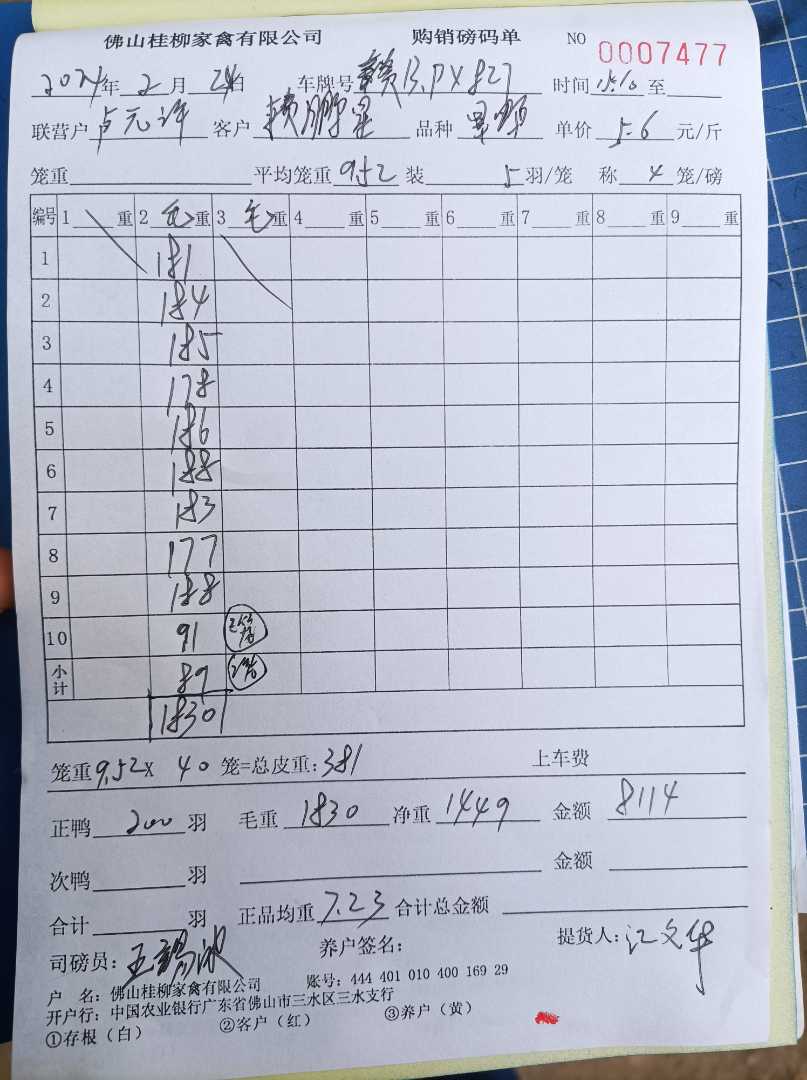 佛山桂柳家禽有限公司 购销磅码单 NO 0007477
2024年 2月 24日 车牌号 赣B.PX827 时间 15:10 至
联营户 卢元许 客户 赖鹏星 品种 单价 5.6 元/斤
笼重 平均笼重 9.52 装 5 羽/笼 称 4 笼/磅
编号 1 重 2 毛 重 3 毛 重 4 重 5 重 6 重 7 重 8 重 9 重
1 181
2 184
3 185
4 178
5 186
6 188
7 183
8 177
9 188
10 91
小计 89
1830
笼重 9.52 X 40 笼=总皮重: 381 上车费
正鸭 200 羽 毛重 1830 净重 1449 金额 8114
次鸭 羽 金额
合计 羽 正品均重 7.23 合计总金额
司磅员: 养户签名: 提货人: 江文华
户 名: 佛山桂柳家禽有限公司 账号: 444 401 010 400 169 29
开户行: 中国农业银行广东省佛山市三水区三水支行
①存根(白) ②客户(红) ③养户(黄)